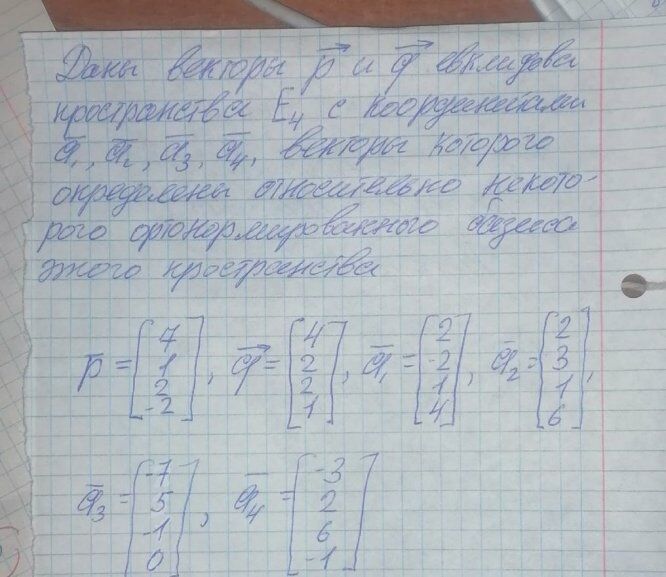 Даны векторы p и q евклидова
пространства E₄ с координатами
a₁, a₂, a₃, a₄, векторы которого
определены относительно некото-
рого ортонормированного базиса
этого пространства
p = [7 1 2 -2], q = [4 2 2 1], a₁ = [2 -2 1 4], a₂ = [2 3 1 6],
a₃ = [-7 5 -1 0], a₄ = [-3 2 6 -1]